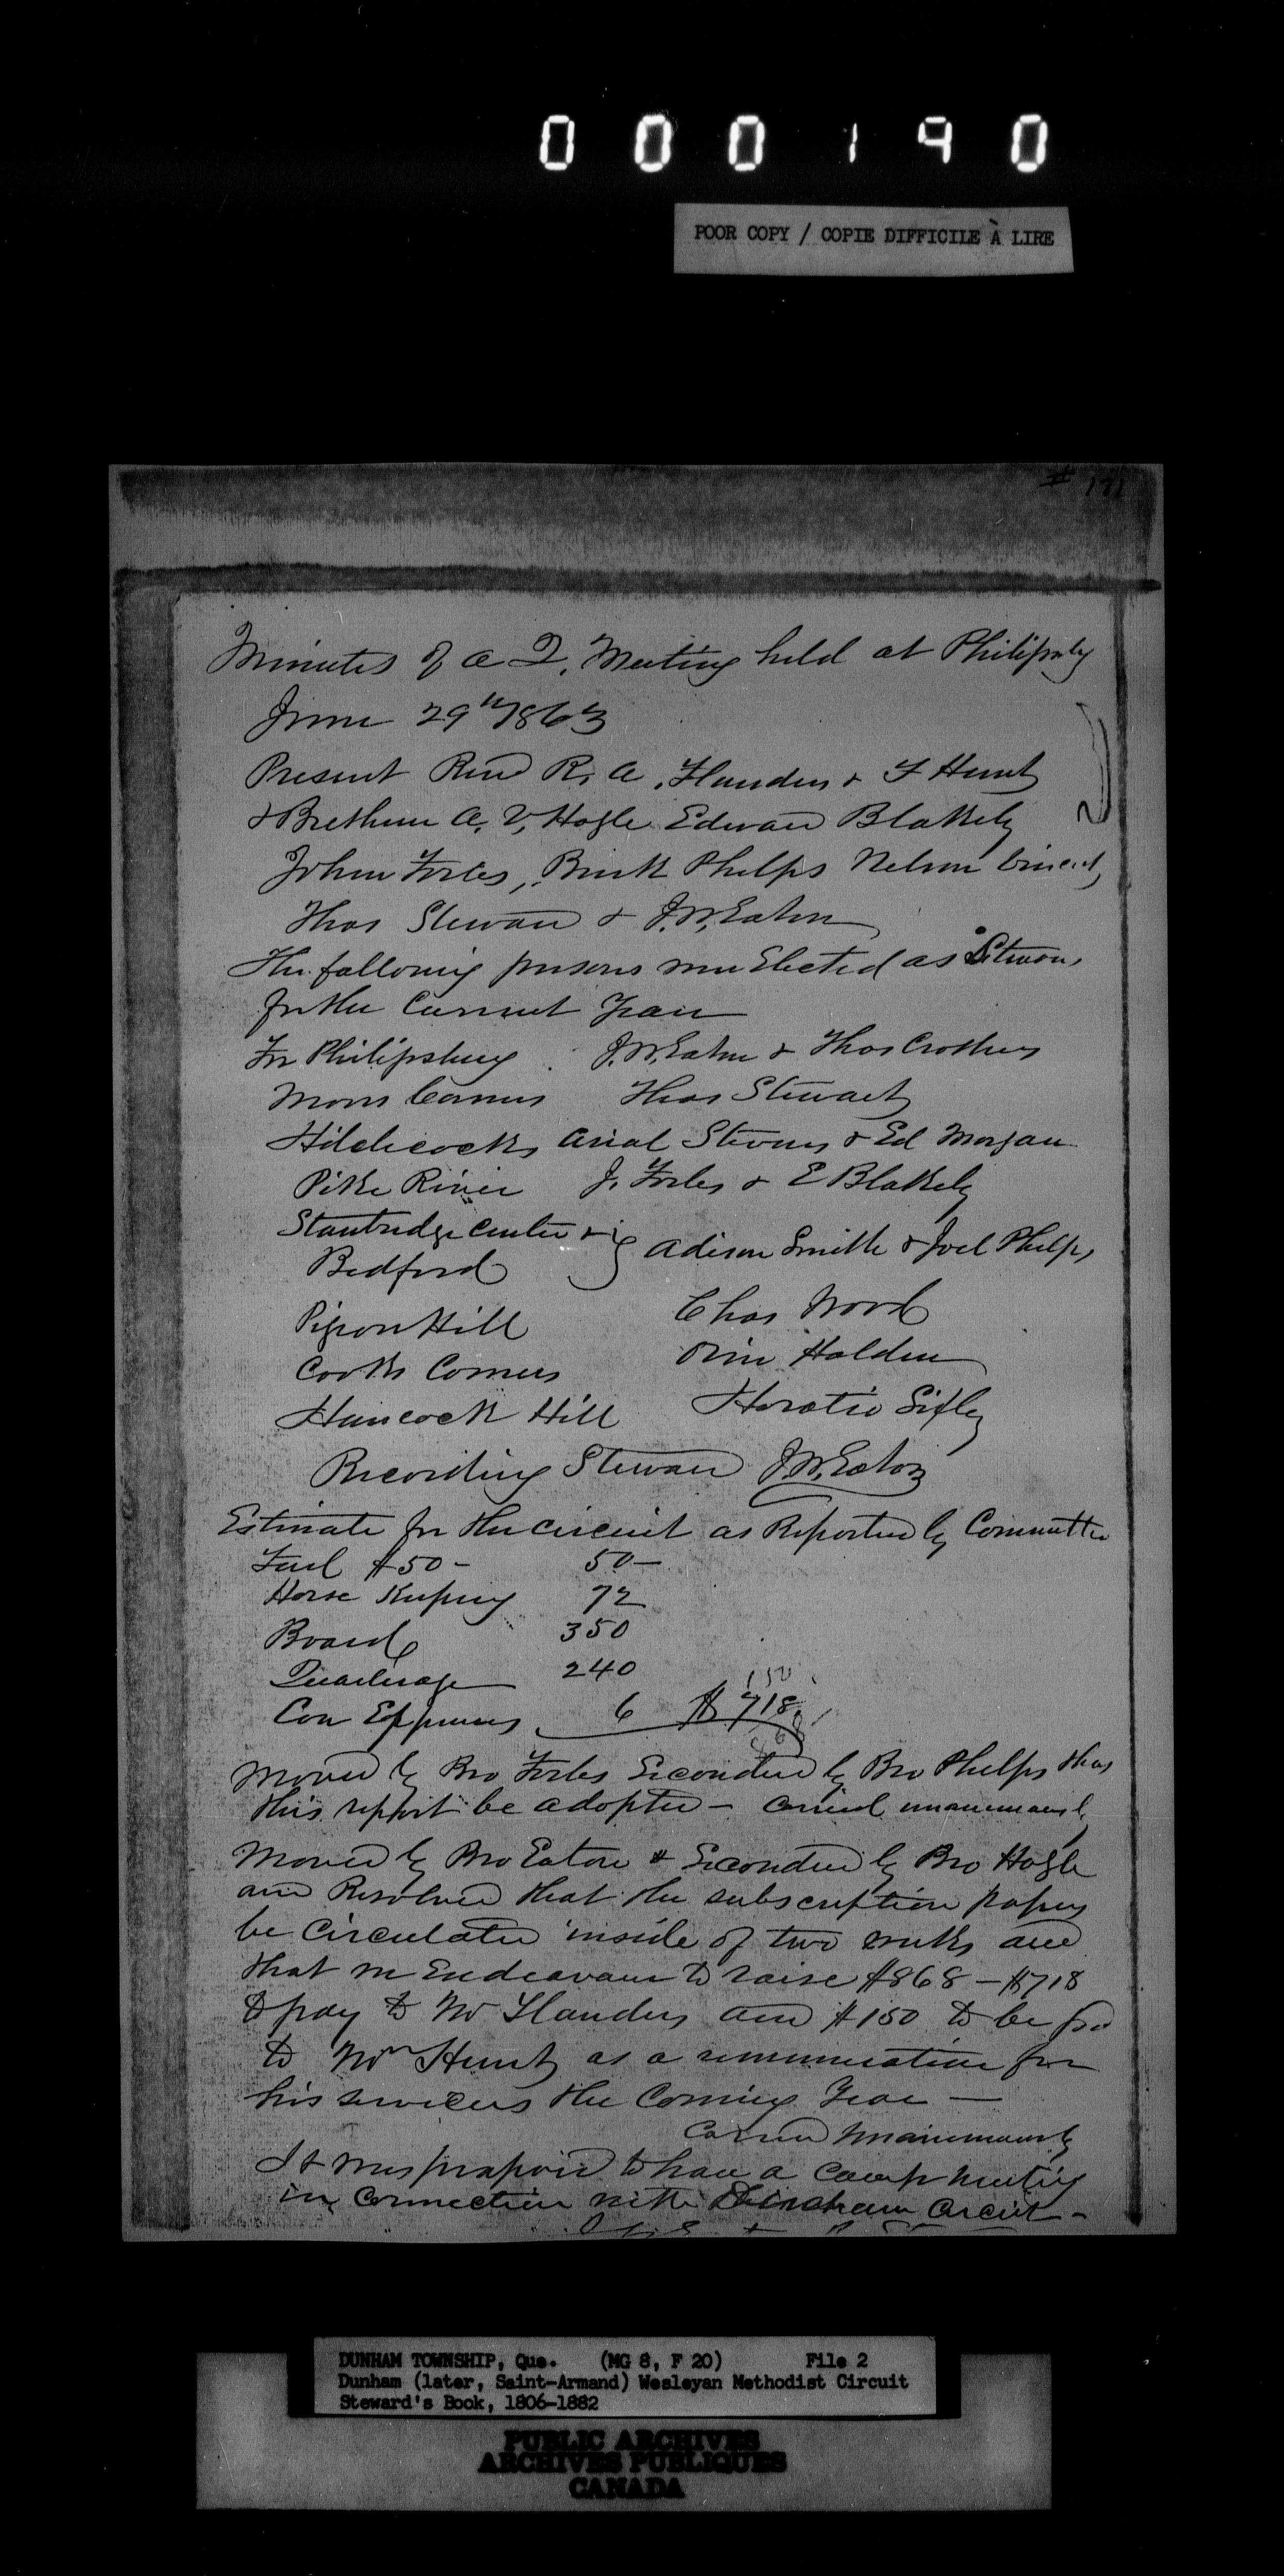 000190
POOR COPY / COPIE DIFFICILE À LIRE
# 191
Minutes of a Q. Meeting held at Philipsbg
June 29th 1863
Present Revd R. A. Flanders & F Hunt
& Brethren A. V. Hogle Edward Blakely
John Forbes, Birnk Phelps Nelson
Thos Steward & J. W. Eaton
The following persons were Elected as Stewards
for the Current Year
For Philipsburg J. W. Eaton & Thos Crothers
Morris Corners Thos Stewart
Hitchcocks Arial Stevens & Ed Morgan
Pike River J. Forbes & E Blakely
Stanbridge Center &
Bedford Adison Smith & Joel Phelps
Pigeon Hill Chas Wood
Cooks Corners Orin Holden
Hancock Hill Horatio Sixby
Recording Steward J. W. Eaton
Estimate for the circuit as Reported by Committee
Fuel $50 - 50 -
Horse Keeping 72
Board 350
Quarterage 240
150
Con Expenses 6 $718
868
Moved by Bro Forbes Seconded by Bro Phelps that
this report be adopted - Carried unanimously
Moved by Bro Eaton & Seconded by Bro Hogle
and Resolved that the subscription papers
be Circulated inside of two weeks and
that we Endeavour to raise $868 - $718
to pay to Mr Flanders and $150 to be pd
to Mr Hunt as a remuneration for
his services the Coming Year —
Carried Unanimously
It was proposed to have a Camp meeting
in Connection with Dunham Circuit -
DUNHAM TOWNSHIP, Que. (MG 8, F 20) File 2
Dunham (later, Saint-Armand) Wesleyan Methodist Circuit
Steward's Book, 1806-1882
PUBLIC ARCHIVES
ARCHIVES PUBLIQUES
CANADA